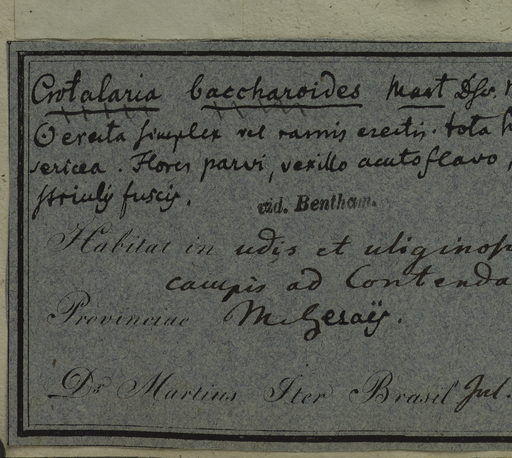 Crotalaria baccharoides Mart
erecta simplex vel ramis erectis. tota
sericea. Flores parvi, vexillo acuto flavo,
striulis fuscis.
vid. Bentham.
Habitat in udis et uliginos
campis ad Contenda
Provinciae M. Geraës.
Dr Martius Iter Brasil Jul.